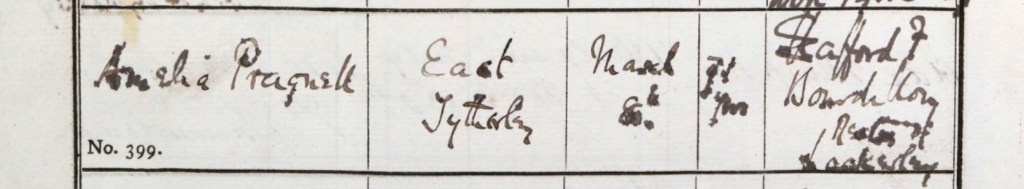 Amelia Pragnell
East
Tytherley
March
8th.
yrs
Stafford F
Bourdillon
Rector of
Lockerley
No. 399.